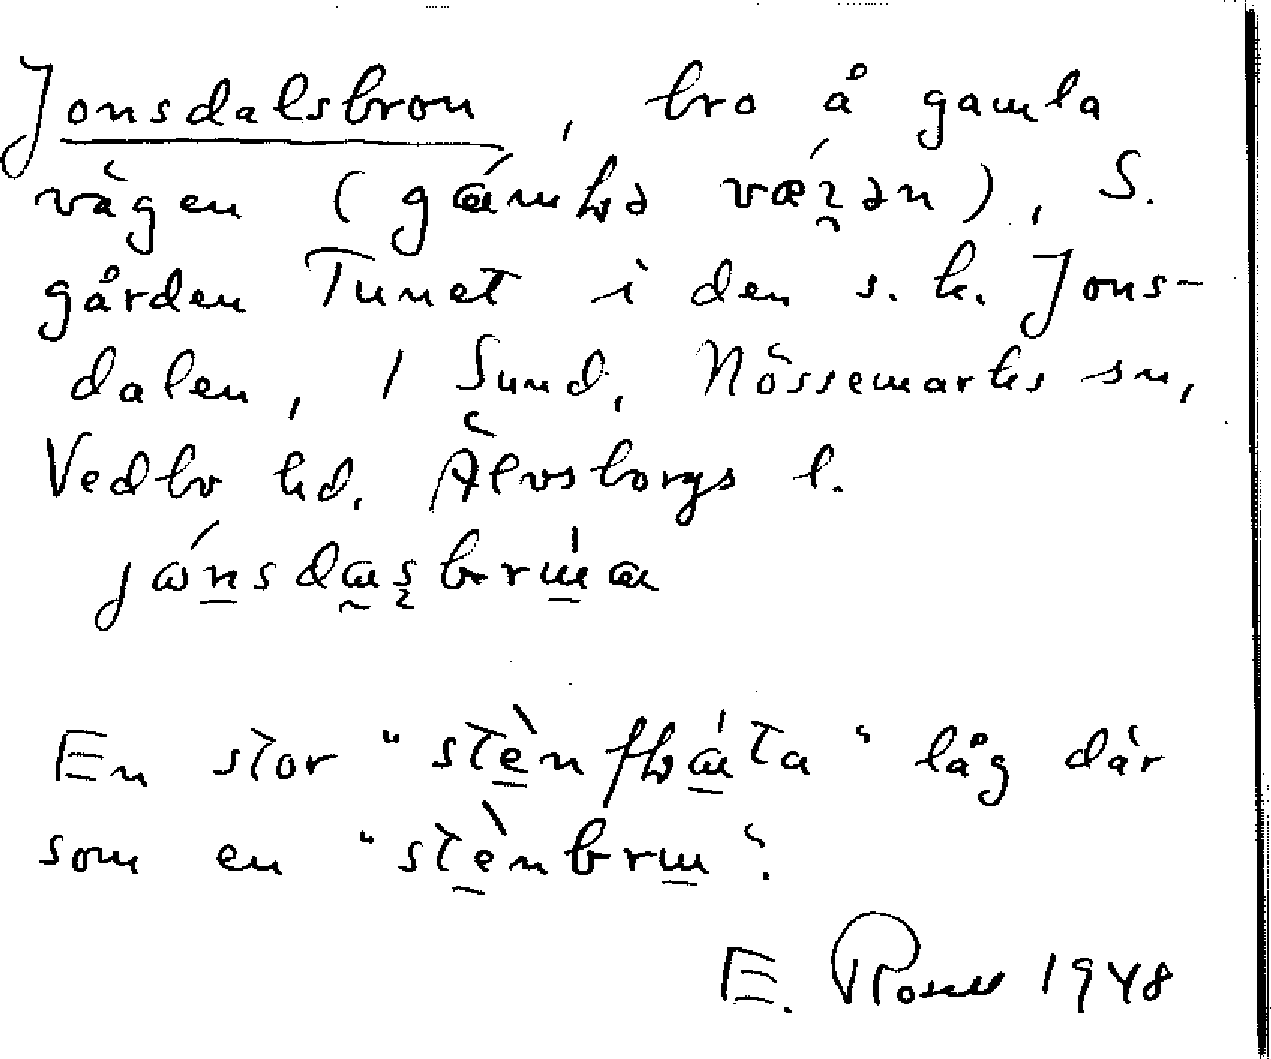 Jonsdalsbron, bro å gamla
vägen (
), S.
gården Tunet i den s. k. Jons-
dalen, 1 Sund, Nössemarks sn,
Vedbo hd. Älvsborgs l.
En stor "stènfɫɑ́ta" låg där
som en "stènbrɯ".
E. Rosell 1948